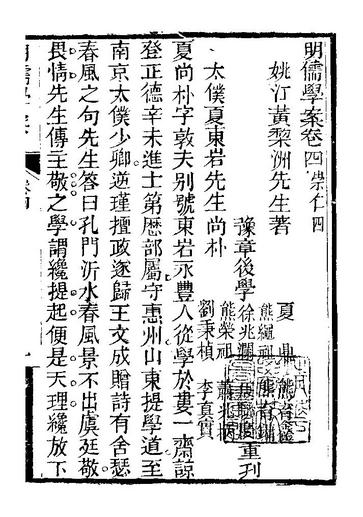 明儒學案卷四 崇仁四
姚江黃棃洲先生著
夏鼎
熊繩祖
豫章後學 徐兆瀾 重刊
熊榮祖
劉秉楨 李真實
太僕夏東岩先生尚朴
夏尚朴字敦夫別號東岩永豐人從學於婁一齋諒
登正德辛未進士第歷部屬守惠州山東提學道至
南京太僕少卿逆瑾擅政遂歸王文成贈詩有舍瑟
春風之句先生答曰孔門沂水春風景不出虞廷敬
畏情先生傳主敬之學謂纔提起便是天理纔放下